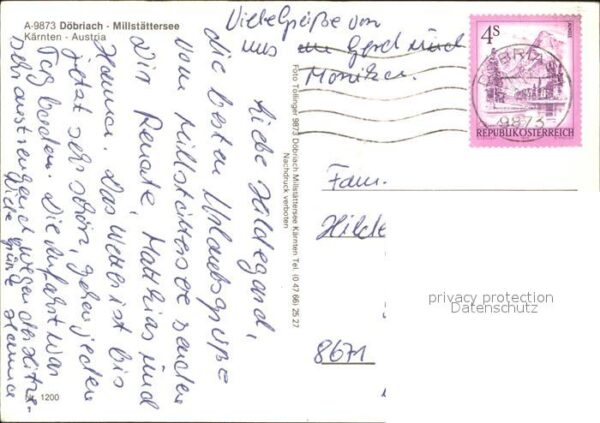 A-9873 Döbriach - Millstättersee
Kärnten - Austria
Liebe Hildegard,
die besten Urlaubsgrüße
vom Millstättersee senden
Dir Renate, Matthias und
Hanna. Das Wetter ist bis
jetzt sehr schön, gehen jeden
Tag baden. Die Anfahrt war
sehr anstrengend wegen der Hitze.
Viele Grüße Hanna
Viele Grüße von
uns Gerd und
Monika.
Foto Tollinger 9873 Döbriach Millstättersee Kärnten Tel. (0 47 66) 25 27
Nachdruck verboten
4S
9873
REPUBLIK ÖSTERREICH
Fam.
Hilde
8671
privacy protection
Datenschutz
1200